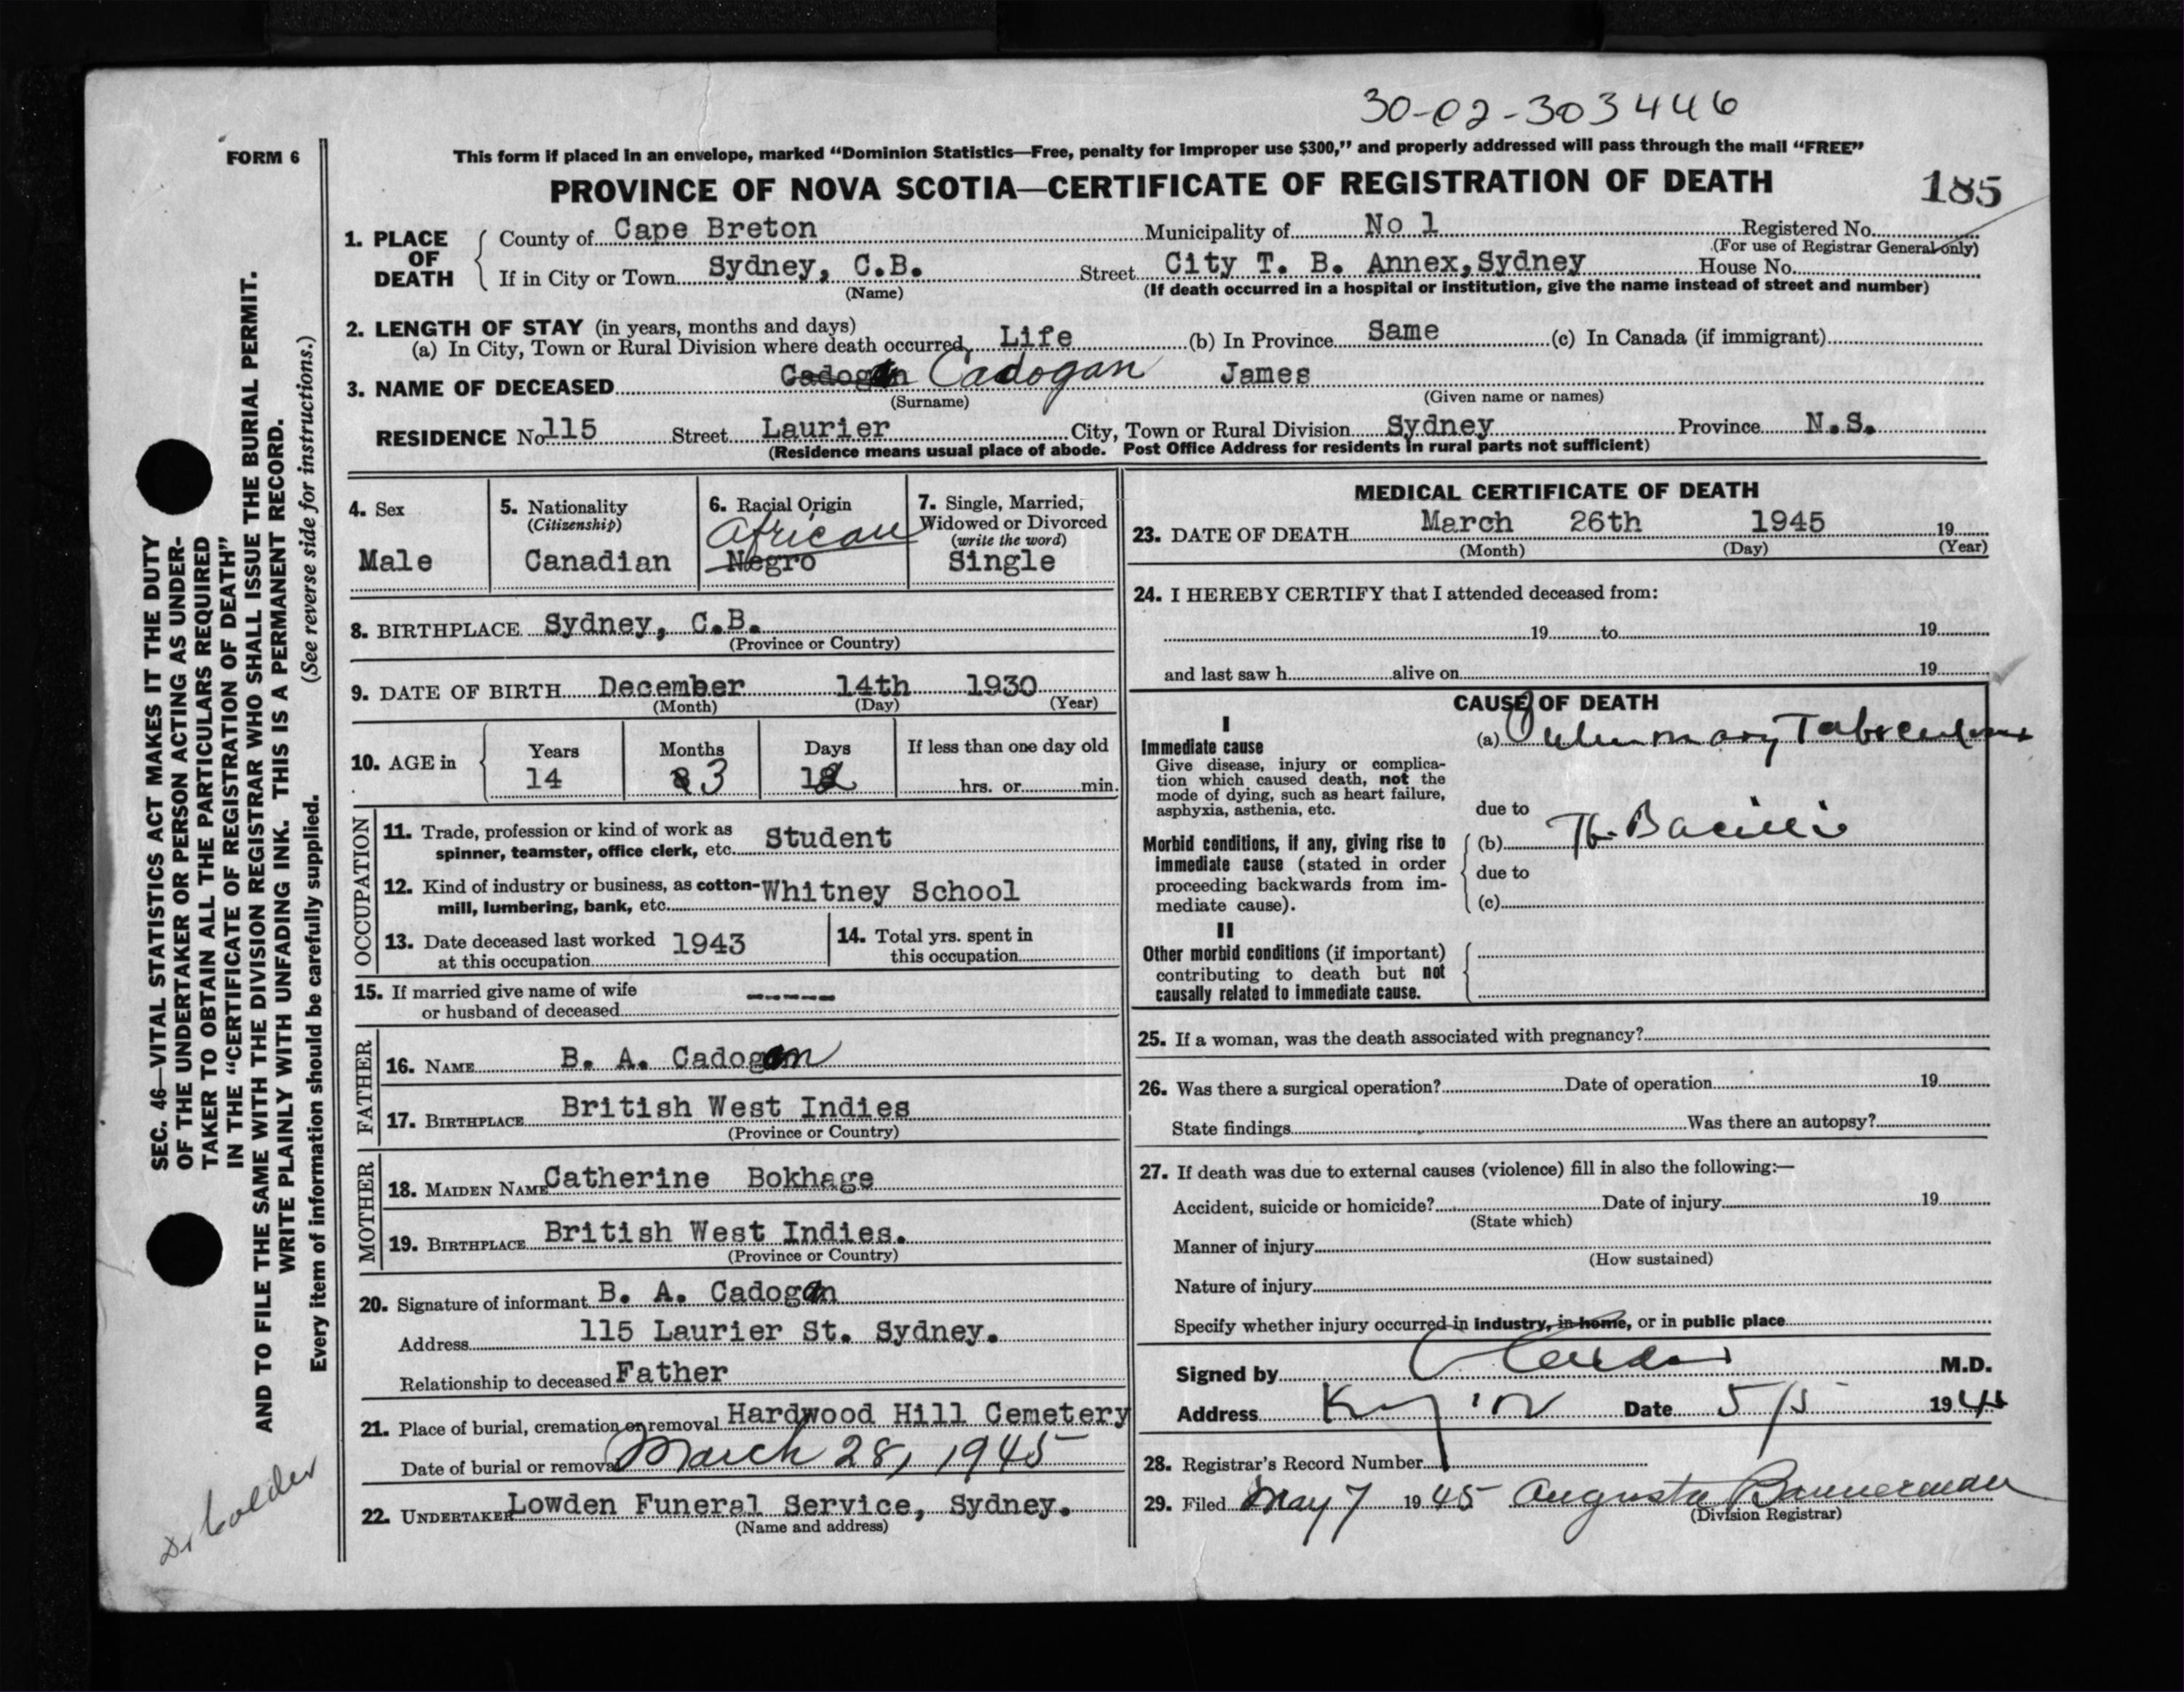 30-02-303446
FORM 6
This form if placed in an envelope, marked "Dominion Statistics—Free, penalty for improper use $300," and properly addressed will pass through the mail "FREE"
PROVINCE OF NOVA SCOTIA—CERTIFICATE OF REGISTRATION OF DEATH
185
1. PLACE OF DEATH
County of Cape Breton Municipality of No 1 Registered No.
(For use of Registrar General only)
If in City or Town Sydney, C.B. Street City T. B. Annex, Sydney House No.
(Name) (If death occurred in a hospital or institution, give the name instead of street and number)
2. LENGTH OF STAY (in years, months and days)
(a) In City, Town or Rural Division where death occurred Life (b) In Province Same (c) In Canada (if immigrant)
3. NAME OF DECEASED Cadogan Cadogan James
(Surname) (Given name or names)
RESIDENCE No 115 Street Laurier City, Town or Rural Division Sydney Province N.S.
(Residence means usual place of abode. Post Office Address for residents in rural parts not sufficient)
4. Sex
Male
5. Nationality
(Citizenship)
Canadian
6. Racial Origin
African
Negro
7. Single, Married,
Widowed or Divorced
(write the word)
Single
8. BIRTHPLACE Sydney, C.B.
(Province or Country)
9. DATE OF BIRTH December 14th 1930
(Month) (Day) (Year)
10. AGE in
Years Months Days If less than one day old
14 3 12 hrs. or min.
OCCUPATION
11. Trade, profession or kind of work as
spinner, teamster, office clerk, etc. Student
12. Kind of industry or business, as cotton-
mill, lumbering, bank, etc. Whitney School
13. Date deceased last worked
at this occupation 1943
14. Total yrs. spent in
this occupation
15. If married give name of wife
or husband of deceased -----
FATHER
16. NAME B. A. Cadogan
17. BIRTHPLACE British West Indies
(Province or Country)
MOTHER
18. MAIDEN NAME Catherine Bokhage
19. BIRTHPLACE British West Indies.
(Province or Country)
20. Signature of informant B. A. Cadogan
Address 115 Laurier St. Sydney.
Relationship to deceased Father
21. Place of burial, cremation or removal Hardwood Hill Cemetery
Date of burial or removal March 28, 1945
22. UNDERTAKER Lowden Funeral Service, Sydney.
(Name and address)
MEDICAL CERTIFICATE OF DEATH
23. DATE OF DEATH March 26th 1945 19
(Month) (Day) (Year)
24. I HEREBY CERTIFY that I attended deceased from:
19 to 19
and last saw h alive on 19
CAUSE OF DEATH
I
Immediate cause
Give disease, injury or complica-
tion which caused death, not the
mode of dying, such as heart failure,
asphyxia, asthenia, etc.
(a) Pulmonary Tuberculosis
due to
Morbid conditions, if any, giving rise to
immediate cause (stated in order
proceeding backwards from im-
mediate cause).
(b) Tb. Bacilli
due to
(c)
II
Other morbid conditions (if important)
contributing to death but not
causally related to immediate cause.
25. If a woman, was the death associated with pregnancy?
26. Was there a surgical operation? Date of operation 19
State findings Was there an autopsy?
27. If death was due to external causes (violence) fill in also the following:—
Accident, suicide or homicide? Date of injury 19
(State which)
Manner of injury
(How sustained)
Nature of injury
Specify whether injury occurred in industry, in home, or in public place
Signed by M.D.
Address Date 5/5 194
28. Registrar's Record Number
29. Filed May 7 1945 Augusta Bannerman
(Division Registrar)
SEC. 46—VITAL STATISTICS ACT MAKES IT THE DUTY
OF THE UNDERTAKER OR PERSON ACTING AS UNDER-
TAKER TO OBTAIN ALL THE PARTICULARS REQUIRED
IN THE "CERTIFICATE OF REGISTRATION OF DEATH"
AND TO FILE THE SAME WITH THE DIVISION REGISTRAR WHO SHALL ISSUE THE BURIAL PERMIT.
WRITE PLAINLY WITH UNFADING INK. THIS IS A PERMANENT RECORD.
Every item of information should be carefully supplied. (See reverse side for instructions.)
Dr Calder